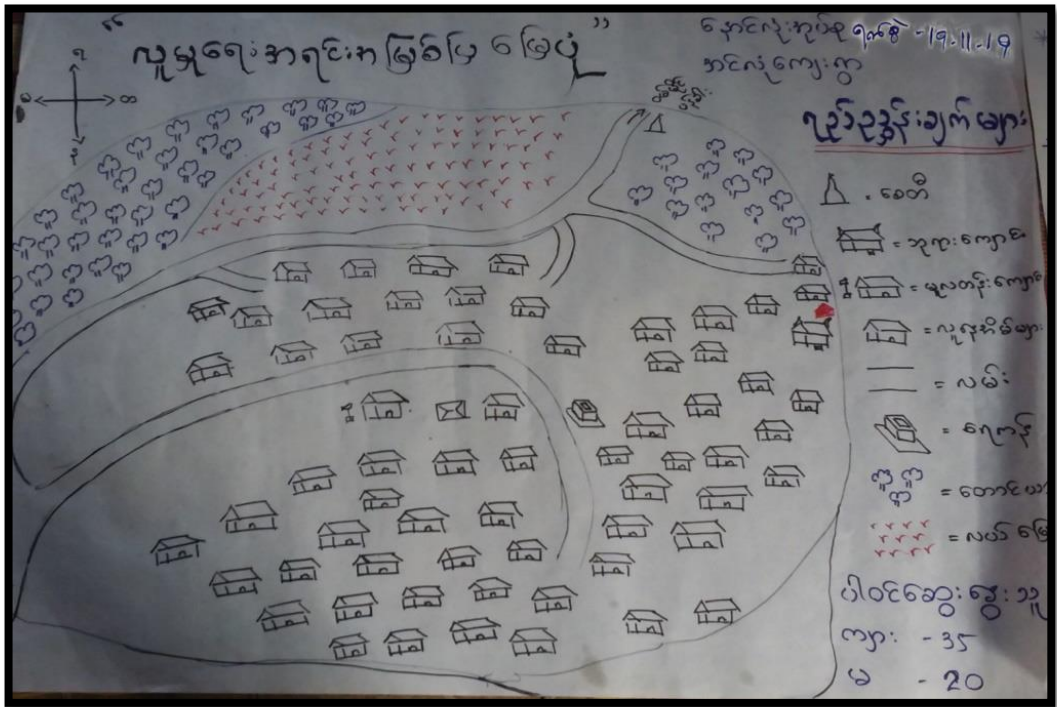 "လူမှုရေးအရင်းအမြစ်ပြ မြေပုံ"
နောင်လုံးအုပ်စု ရက်စွဲ - 19.11.19
အင်လုံကျေးရွာ
ရည်ညွှန်းချက်များ
= စေတီ
= ဘုရားကျောင်း
= မူလတန်းကျောင်း
= လူနေအိမ်များ
= လမ်း
= ရေကန်
= တောင်ယာ
= လယ်မြေ
ပါဝင်ဆွေးနွေးသူ
ကျား - 35
မ - 20